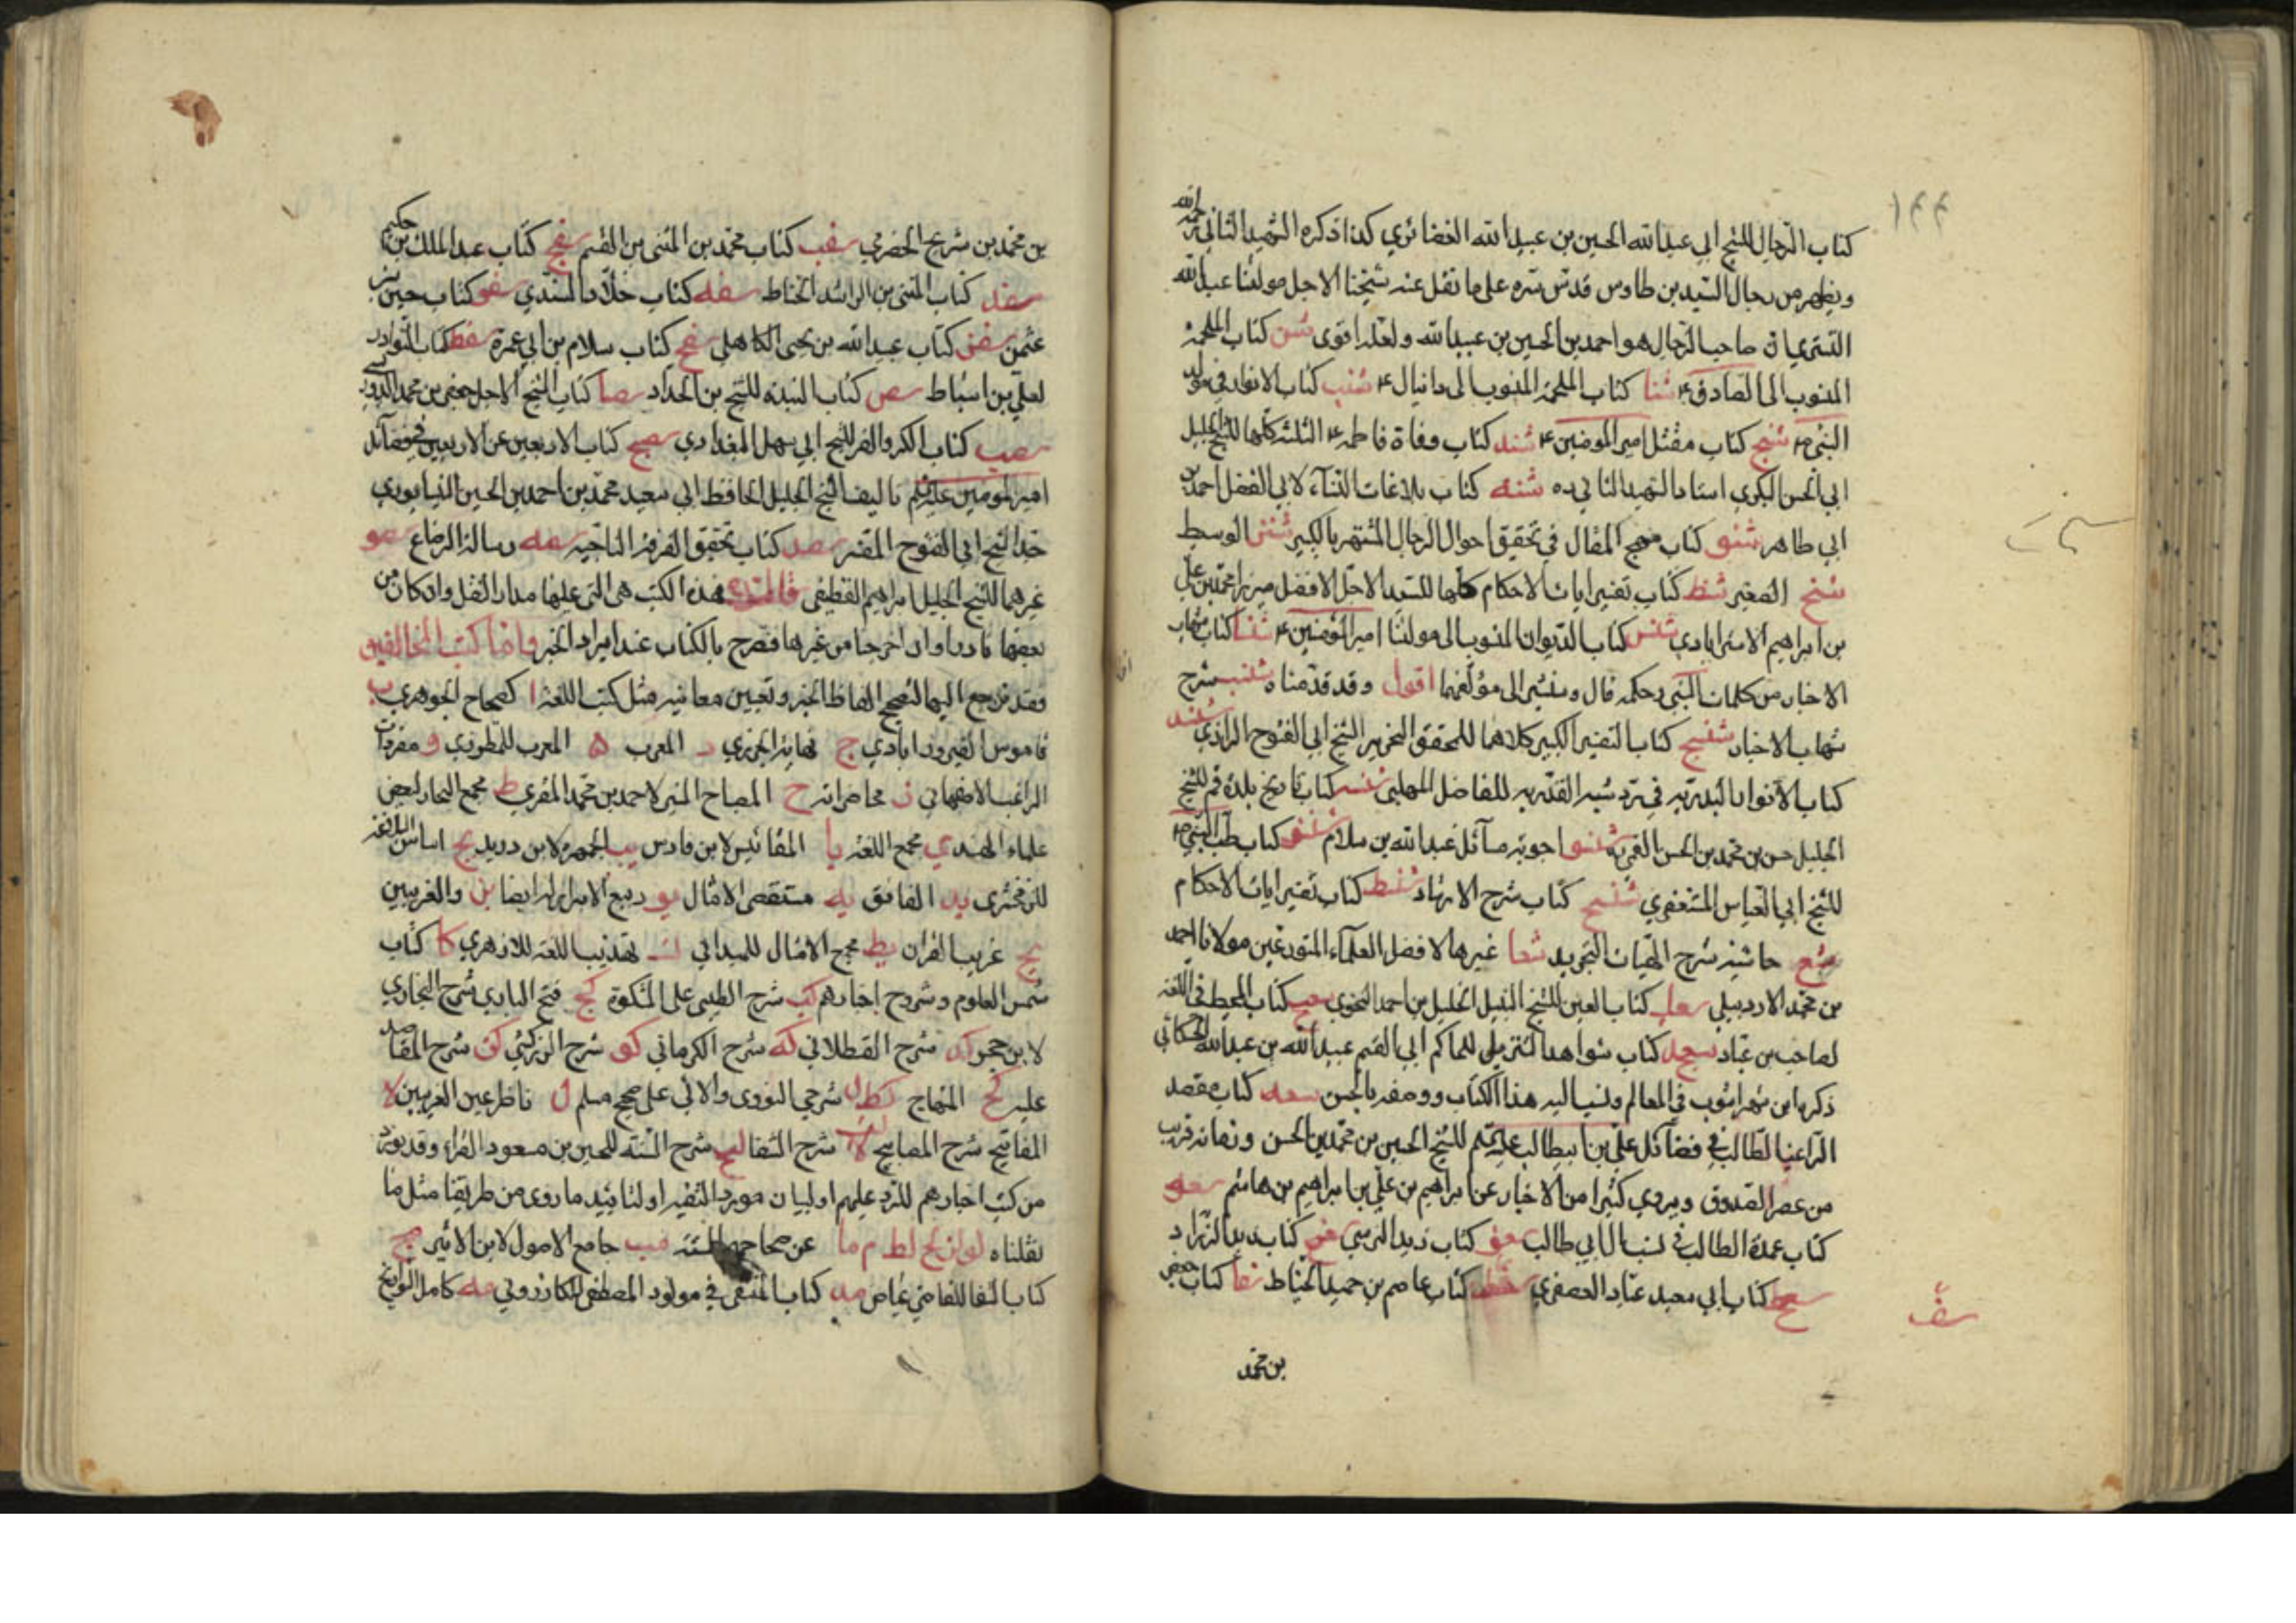 ١٢٢
كتاب الرجال للشيخ ابي عبدالله الحسين بن عبيدالله الغضائري كذا ذكره الشهيد الثاني رحمه الله
ويظهر من رجال السيد بن طاوس قدس سره على ما نقل عنه شيخنا الاجل مولنا عبدالله
التستري ان صاحب الرجال هو احمد بن الحسين بن عبيدالله ولعله اقوى شن كتاب الملحمة
المنسوب الى الصادق ع شنا كتاب الملحمة المنسوب الى دانيال ع شنب كتاب الانوار في مولد
النبي ص شنج كتاب مقتل امير المومنين ع شند كتاب وفاة فاطمه ع الثلثه كلها للشيخ الجليل
ابي الحسن البكري استاد الشهيد الثاني ره شنه كتاب بلاغات النساء لابي الفضل احمد بن
ابي طاهر شنو كتاب منهج المقال في تحقيق احوال الرجال المشتهر بالكبير شنز الوسيط
شنح الصغير شنط كتاب تفسير ايات الاحكام كلها للسيد الاجل الافضل ميرزا محمد بن علي
بن ابراهيم الاسترابادي شس كتاب الديوان المنسوب الى مولنا امير المؤمنين ع شسا كتاب شهاب
الاخبار من كلمات النبي وحكمه قال وسنشير الى مؤلفهما اقول وقد قدمناه شسب شرح
شهاب الاخبار شسج كتاب التفسير الكبير كلاهما للمحقق النحرير الشيخ ابي الفتوح الرازي شسد
كتاب الانوار البدريه في رد شبه القدريه للفاضل المهلبي شسه كتاب تاريخ بلدة قم للشيخ
الجليل حسن بن محمد بن الحسن القمي ره شسو اجوبة مسائل عبدالله بن سلام شسز كتاب طب النبي ص
للشيخ ابي العباس المستغفري شسح كتاب شرح الارشاد شسط كتاب تفسير ايات الاحكام
شع حاشية شرح الهيات التجريد شعا غيرها لافضل العلماء المتورعين مولانا احمد
بن محمد الاردبيلي شعب كتاب العين للشيخ النبيل الخليل بن احمد النحوي شعج كتاب المحيط في اللغة
لصاحب بن عباد شعد كتاب شواهد التنزيل للحاكم ابي القسم عبيدالله بن عبدالله الحسكاني
ذكره ابن شهراشوب في المعالم ونسب اليه هذا الكتاب ووصفه بالحسن شعه كتاب مقصد
الراغب الطالب في فضائل علي بن ابيطالب عليه السلم للشيخ الحسين بن محمد بن الحسن وزمانه قريب
من عصر الصدوق ويروي كثيرا من الاخبار عن ابراهيم بن علي بن ابراهيم بن هاشم شعو
كتاب عمدة الطالب في نسب ال ابي طالب شعز كتاب زيد النرسي شعح كتاب زيد الزراد
كتاب ابي سعيد عباد العصفري كتاب عاصم بن حميد الحناط كتاب جعفر
بن محمد
بن محمد بن شريح الحضرمي شفب كتاب محمد بن المثنى بن القسم شفج كتاب عبد الملك بن حكيم
شفد كتاب المثنى بن الراشد الحناط شفه كتاب خلاد السندي شفو كتاب حسين بن
عثمن شفز كتاب عبدالله بن يحيى الكاهلي شفح كتاب سلام بن ابي عمرة شفط كتاب النوادر
لعلي بن اسباط شص كتاب النبذه للشيخ بن الحداد شصا كتاب الشيخ الاجل جعفر بن محمد الدوريستي
شصب كتاب الكر والفر للشيخ ابي سهل البغدادي شصج كتاب الاربعين عن الاربعين في فضائل
امير المومنين عليه السلم تاليف الشيخ الجليل الحافظ ابي سعيد محمد بن احمد بن الحسين النيسابوري
جد الشيخ ابي الفتوح المفسر شصد كتاب تحقيق الفرقة الناجيه شصه رسالة الرضاع شصو
غيرهما للشيخ الجليل ابراهيم القطيفي هذه الكتب هي التي عليها مدار النقل وان كان من
بعضها نادرا وان اخرجنا من غيرها فصرح بالكتاب عند ايراد الخبر واما كتب المخالفين
فقد نرجع اليها لتصحيح الفاظ الخبر وتعيين معانيه مثل كتب اللغة ا كصحاح الجوهري ب
قاموس الفيروزابادي ج نهاية الجزري د المغرب ه المعرب للمطرزي و مفردات
الراغب الاصفهاني ز محاضراته ح المصباح المنير لاحمد بن محمد المقري ط مجمع البحار لبعض
علماء الهند ي مجمع اللغة يا المقائيس لابن فارس يب الجمهرة لابن دريد يج اساس البلاغة
للزمخشري يد الفائق يه مستقصى الامثال يو ربيع الابرار له ايضا يز والغريبين
يح غريب القران يط مجمع الامثال للميداني ك تهذيب اللغة للازهري كا كتاب
شمس العلوم وشروح اخبارهم كب شرح الطيبي على المشكوة كج فتح الباري شرح البخاري
لابن حجر كد شرح القسطلاني كه شرح الكرماني كو شرح الزركشي كز شرح المقاصد
عليه كح المنهاج كط ل شرحي النووي والابي على صحيح مسلم ل ناظر عين الغريبين لا
المفاتيح شرح المصابيح شرح الشفا لج شرح السنة للحسين بن مسعود الفراء وقد نورد
من كتب اخبارهم للرد عليهم او لبيان مورد التقية او لتاييد ما روي من طريقنا مثل ما
نقلناه لد له لو لز لح لط م ما عن صحاحهم الستة مب جامع الاصول لابن الاثير مج
كتاب الشفا للقاضي عياض مد كتاب المنتقى في مولود المصطفى للكازروني مه كامل التواريخ